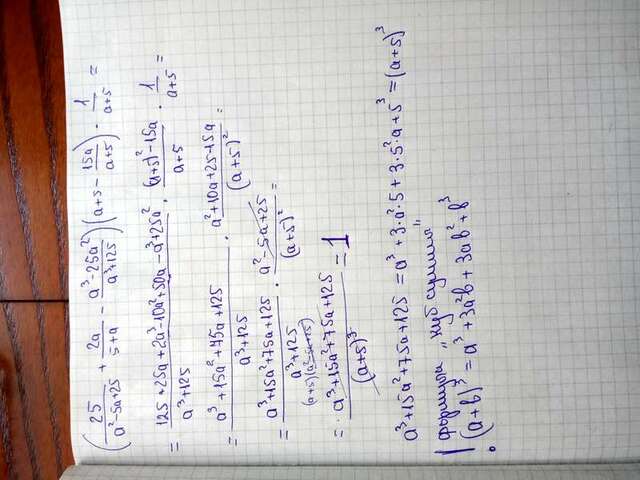 (25/(a²-5a+25) + 2a/(5+a) - (a³-25a²)/(a³+125)) (a+5 - 15a/(a+5)) · 1/(a+5) =
= (125+25a+2a³-10a²+50a-a³+25a²)/(a³+125) · ((a+5)²-15a)/(a+5) · 1/(a+5)
= (a³+15a²+75a+125)/(a³+125) · (a²+10a+25-15a)/(a+5)² =
= (a³+15a²+75a+125)/(a³+125) · (a²-5a+25)/(a+5)² =
(a+5)(a²-5a+25)
= (a³+15a²+75a+125)/(a+5)³ = 1
a³+15a²+75a+125 = a³+3·a²·5+3·5²·a+5³ = (a+5)³
формула „Куб суммы"
(a+b)³ = a³+3a²b+3ab²+b³